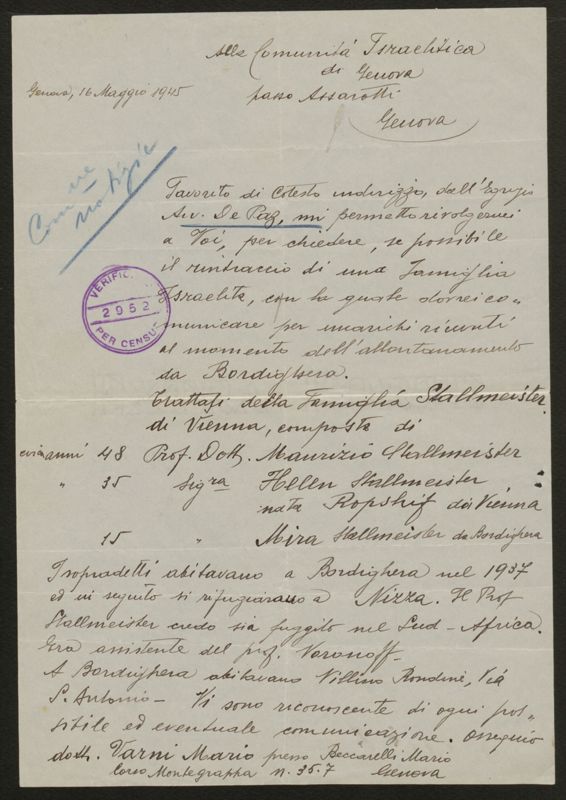 Alla Comunitá Israelitica
di Genova
passo Assarotti
Genova
Genova, 16 Maggio 1945
Com ne
notizie
Favorito di Cotesto indirizzo, dall'Egregio
Avv. De Paz, mi permetto rivolgermi
a Voi, per chiedere, se possibile
il rintraccio di una Famiglia
Israelita, con la quale dovrei co=
municare per incarichi ricevuti
al momento dell'allontanamento
da Bordighera.
VERIFIC
2952
PER CENSU
Trattasi della Famiglia Stallmeister
di Vienna, composta di
circa anni 48 Prof. Dott. Maurizio Stallmeister
" 35 Sig.ra Hellen Stallmeister
nata Ropshif di Vienna
15 " Mira Stallmeister da Bordighera
I sopradetti abitavano a Bordighera nel 1937
ed in seguito si rifugiarono a Nizza. Il Prof
Stallmeister credo sia fuggito nel Sud-Africa.
Era assistente del prof. Voronoff-
A Bordighera abitavano Villino Rondine, Via
S. Antonio- Vi sono riconoscente di ogni pos=
sibile ed eventuale comunicazione. Ossequio
dott. Varni Mario presso Beccarelli Mario
Corso Montegrappa n. 35.7 Genova